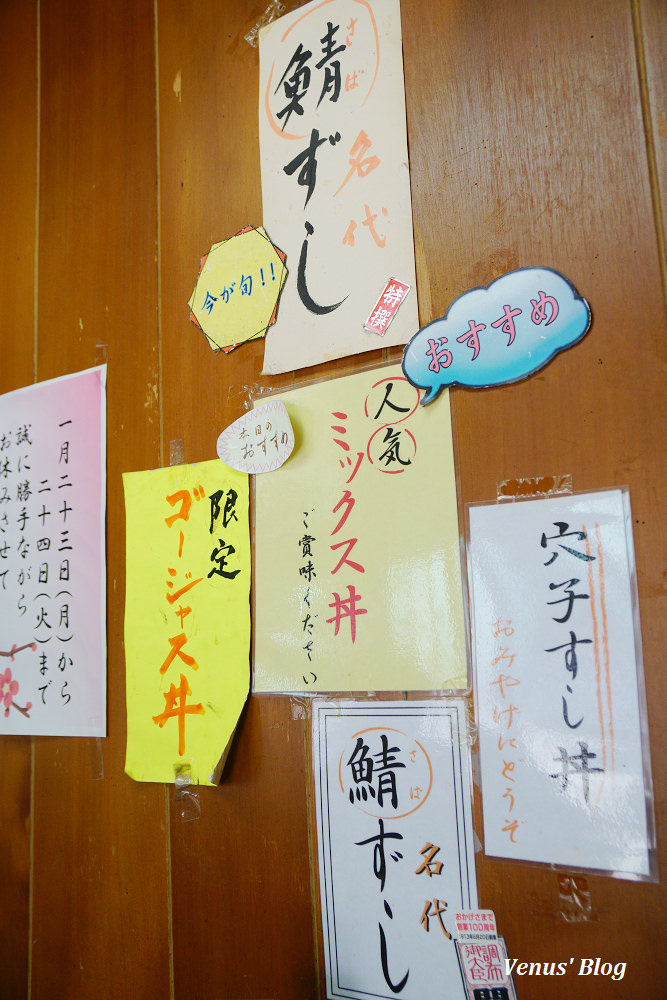 さば
鯖ずし
名代
特撰
今が旬!!
おすすめ
人気
ミックス丼
ご賞味ください
本日の
おすすめ
限定
ゴージャス丼
一月二十三日(月)から
二十四日(火)まで
誠に勝手ながら
お休みさせて
穴子すし丼
おみやげにどうぞ
さば
鯖ずし
名代
おかげさまで
創業100周年
Venus' Blog